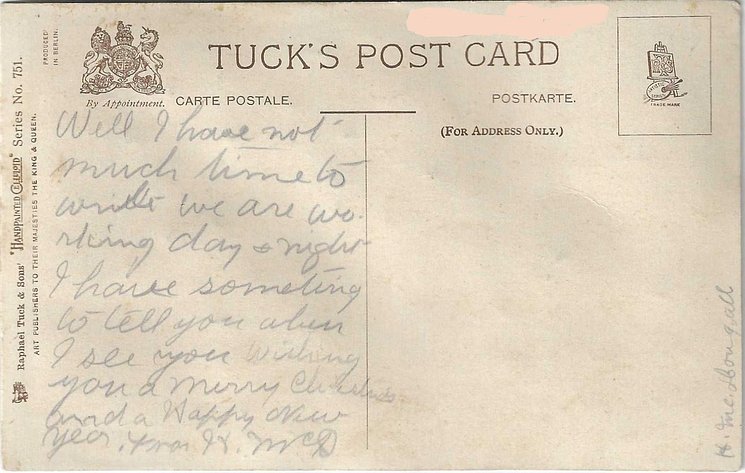 TUCK'S POST CARD
By Appointment. CARTE POSTALE. POSTKARTE.
(FOR ADDRESS ONLY.)
TRADE MARK
PRODUCED
IN BERLIN.
Raphael Tuck & Sons' "HANDPAINTED CELLULOID" Series No. 751.
ART PUBLISHERS TO THEIR MAJESTIES THE KING & QUEEN.
Well I have not
much time to
write we are wo-
rking day & night
I have someting
to tell you when
I see you Wishing
you a Merry Christmas
and a Happy New
Year. from H. McD
H. McDougall